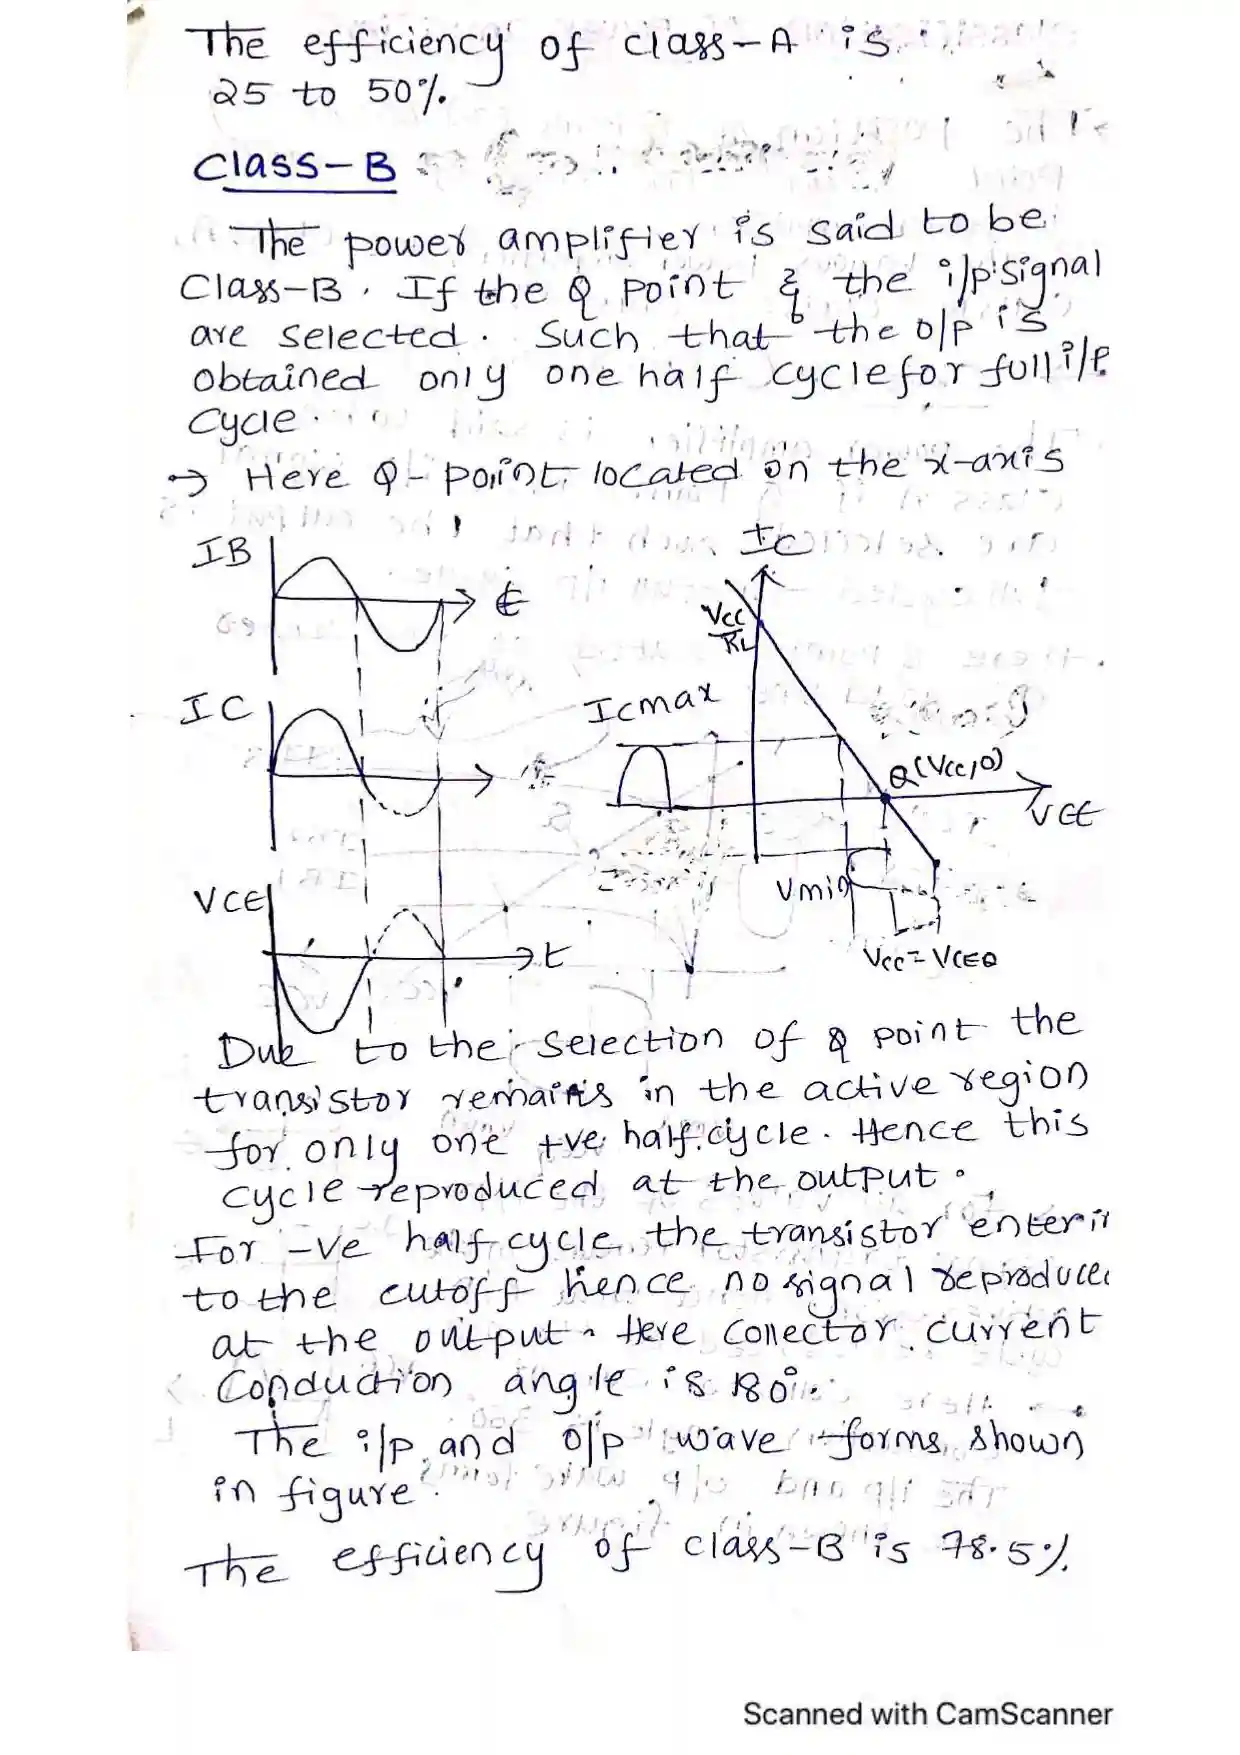 The efficiency of class-A is
25 to 50%.
Class-B
The power amplifier is said to be
Class-B. If the Q point & the i/p signal
are selected. Such that the o/p is
obtained only one half cycle for full i/p
cycle.
→ Here Q- point located on the x-axis
IB
t
IC
VCE
t
IC
Vcc
RL
Icmax
Q(Vcc,0)
VCE
Vmin
Vcc = VCEQ
Due to the selection of Q point the
transistor remains in the active region
for only one +ve half cycle. Hence this
cycle reproduced at the output.
For -ve half cycle the transistor enter in
to the cutoff hence no signal reproduced
at the output. Here Collector current
Conduction angle is 180°.
The i/p and o/p wave forms shown
in figure.
The efficiency of class-B is 78.5%.
Scanned with CamScanner